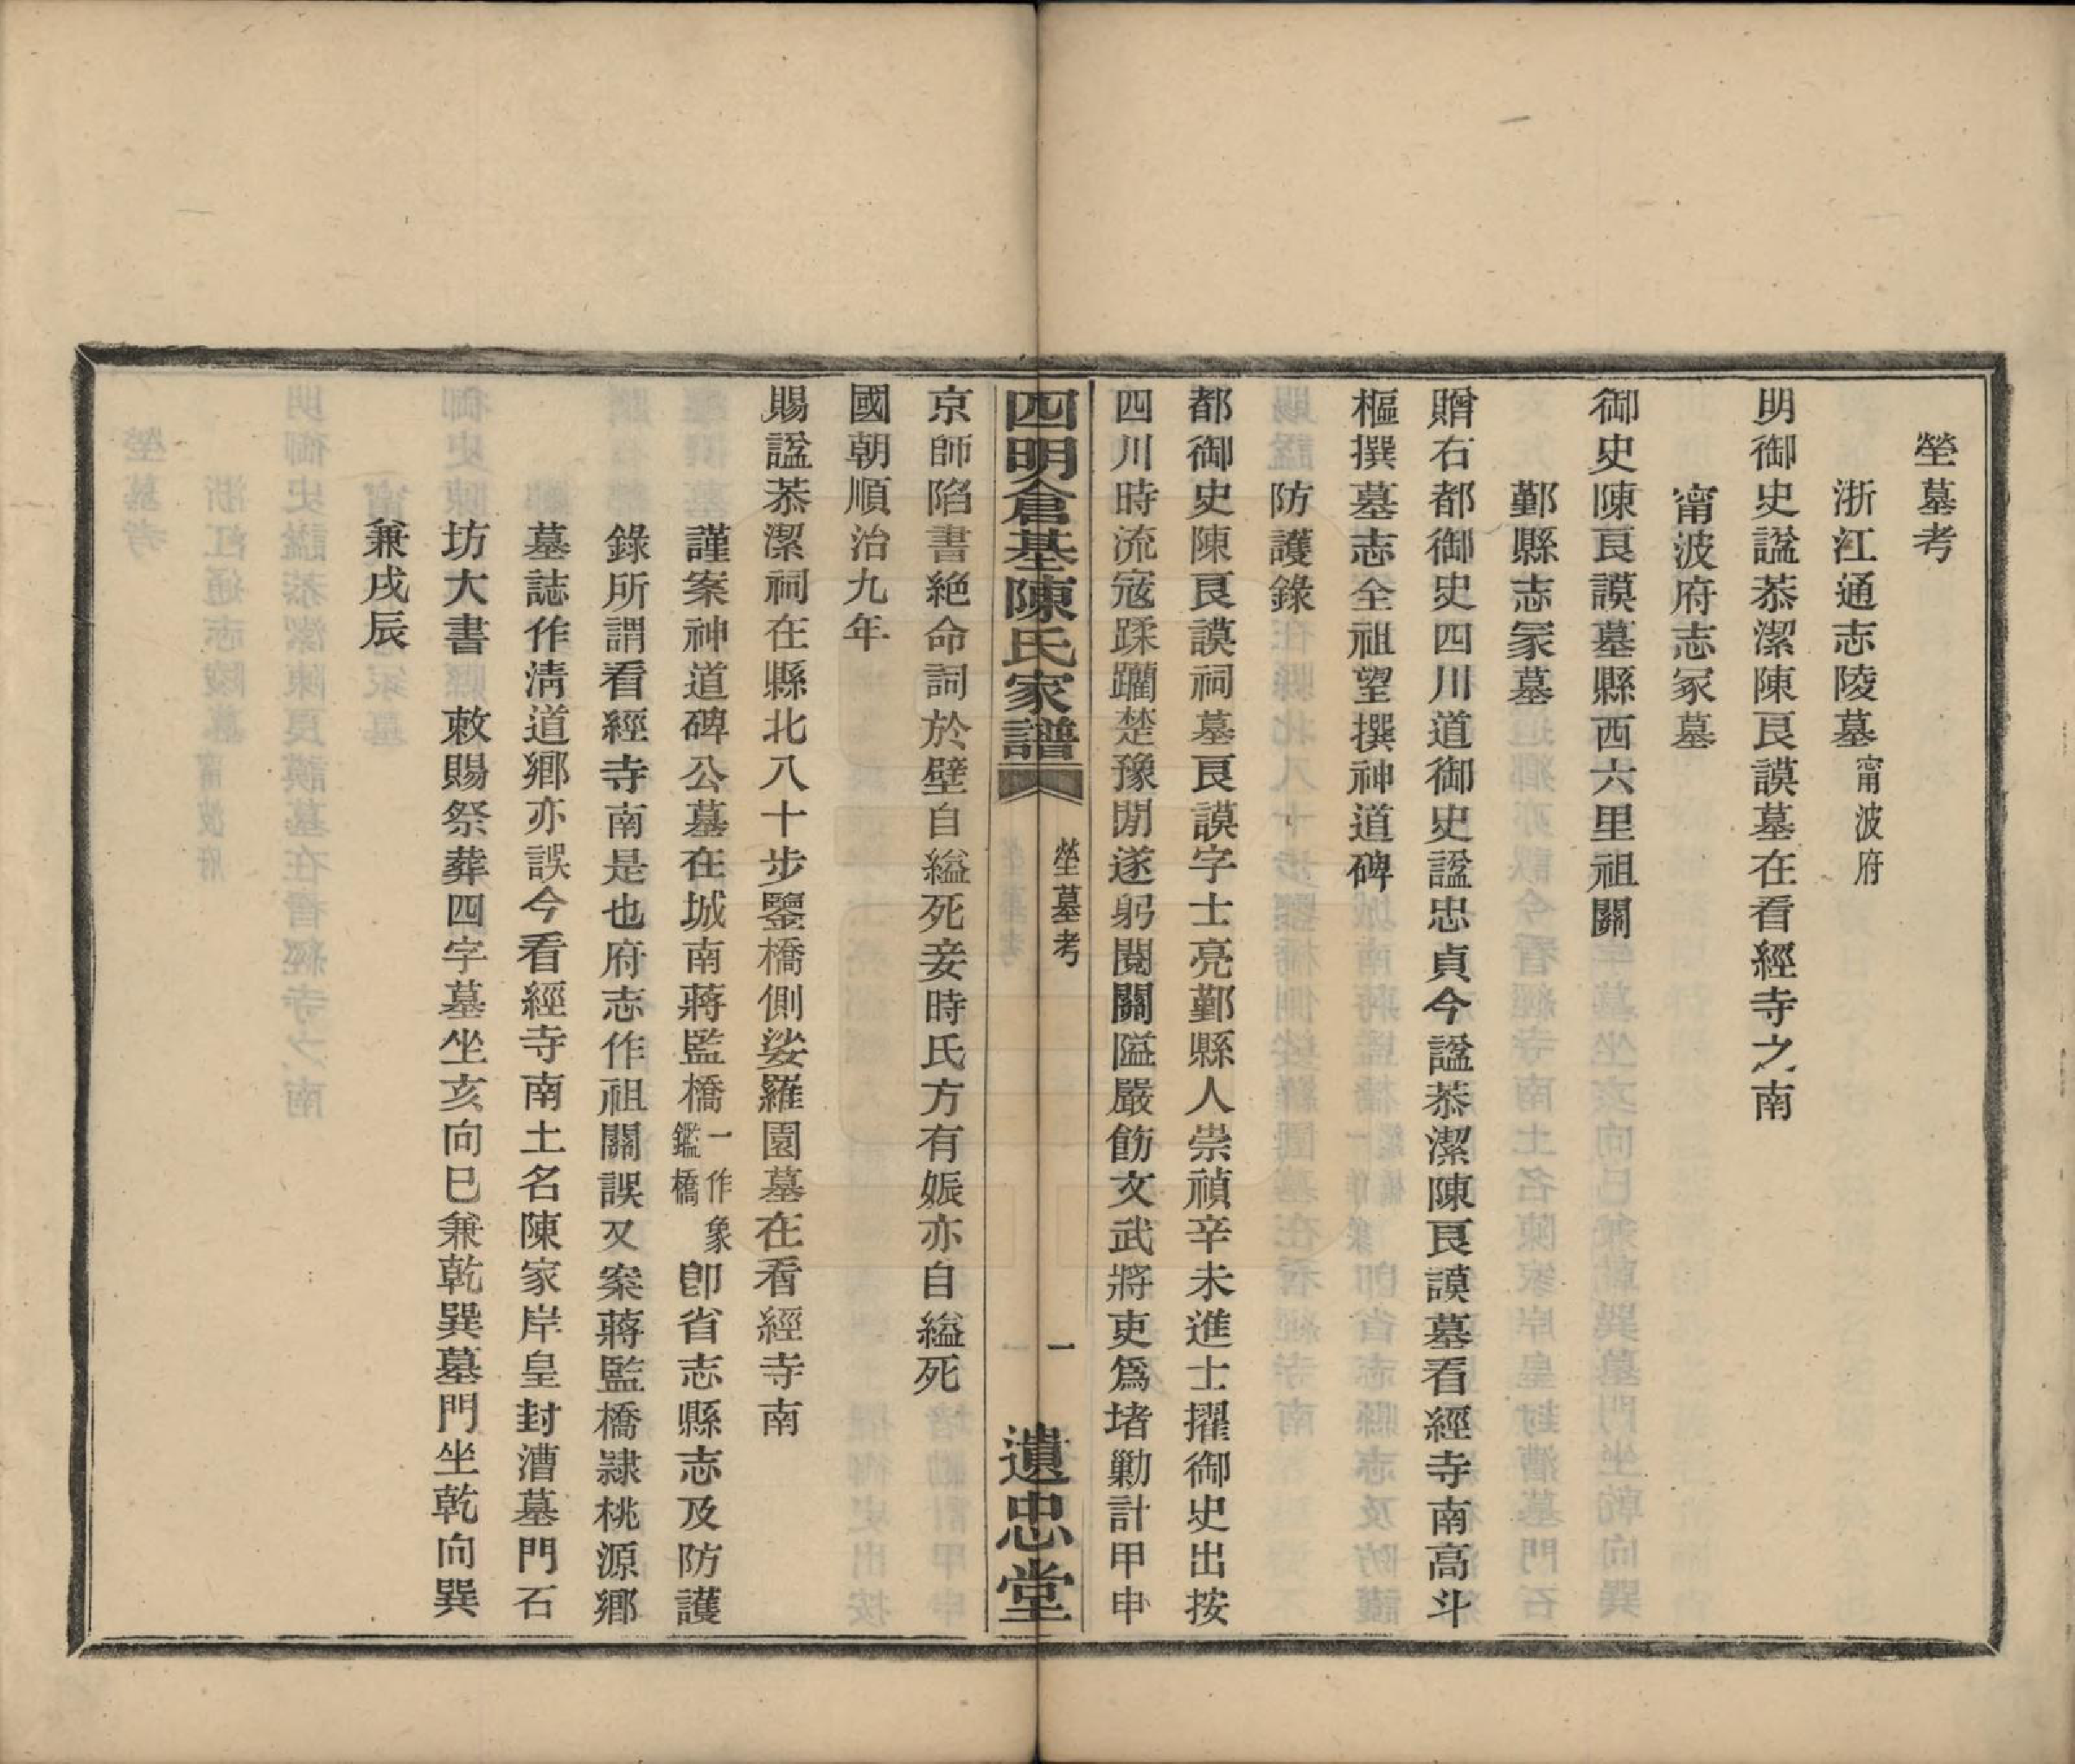 塋墓考
浙江通志陵墓甯波府
明御史諡恭潔陳良謨墓在看經寺之南
甯波府志冢墓
御史陳良謨墓縣西六里祖關
鄞縣志冢墓
贈右都御史四川道御史諡忠貞今諡恭潔陳良謨墓看經寺南高斗
樞撰墓志全祖望撰神道碑
賜諡防護錄
都御史陳良謨祠墓良謨字士亮鄞縣人崇禎辛未進士擢御史出按
四川時流寇蹂躪楚豫閒遂躬閱關隘嚴飭文武將吏爲堵勦計甲申
四明倉基陳氏家譜
塋墓考
一
遺忠堂
京師陷書絕命詞於壁自縊死妾時氏方有娠亦自縊死
國朝順治九年
賜諡恭潔祠在縣北八十步鑒橋側娑羅園墓在看經寺南
謹案神道碑公墓在城南蔣監橋一作象鑑橋卽省志縣志及防護
錄所謂看經寺南是也府志作祖關誤又案蔣監橋隷桃源鄉
墓誌作淸道鄉亦誤今看經寺南土名陳家岸皇封漕墓門石
坊大書敕賜祭葬四字墓坐亥向巳兼乾巽墓門坐乾向巽
兼戌辰